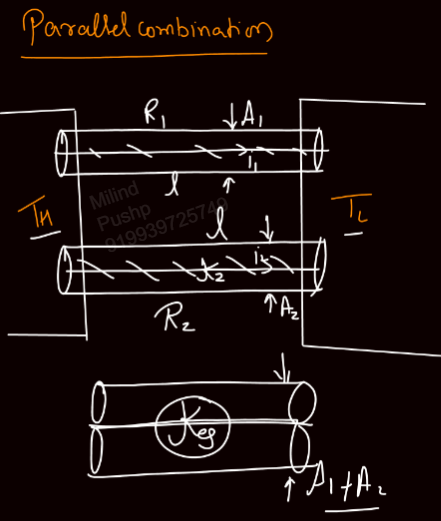 Parallel combination
R₁ A₁
i₁
l
Milind
Pushp
919939725740
T_H T_L
l
K₂ i₂
A₂
R₂
Keq
A₁+A₂